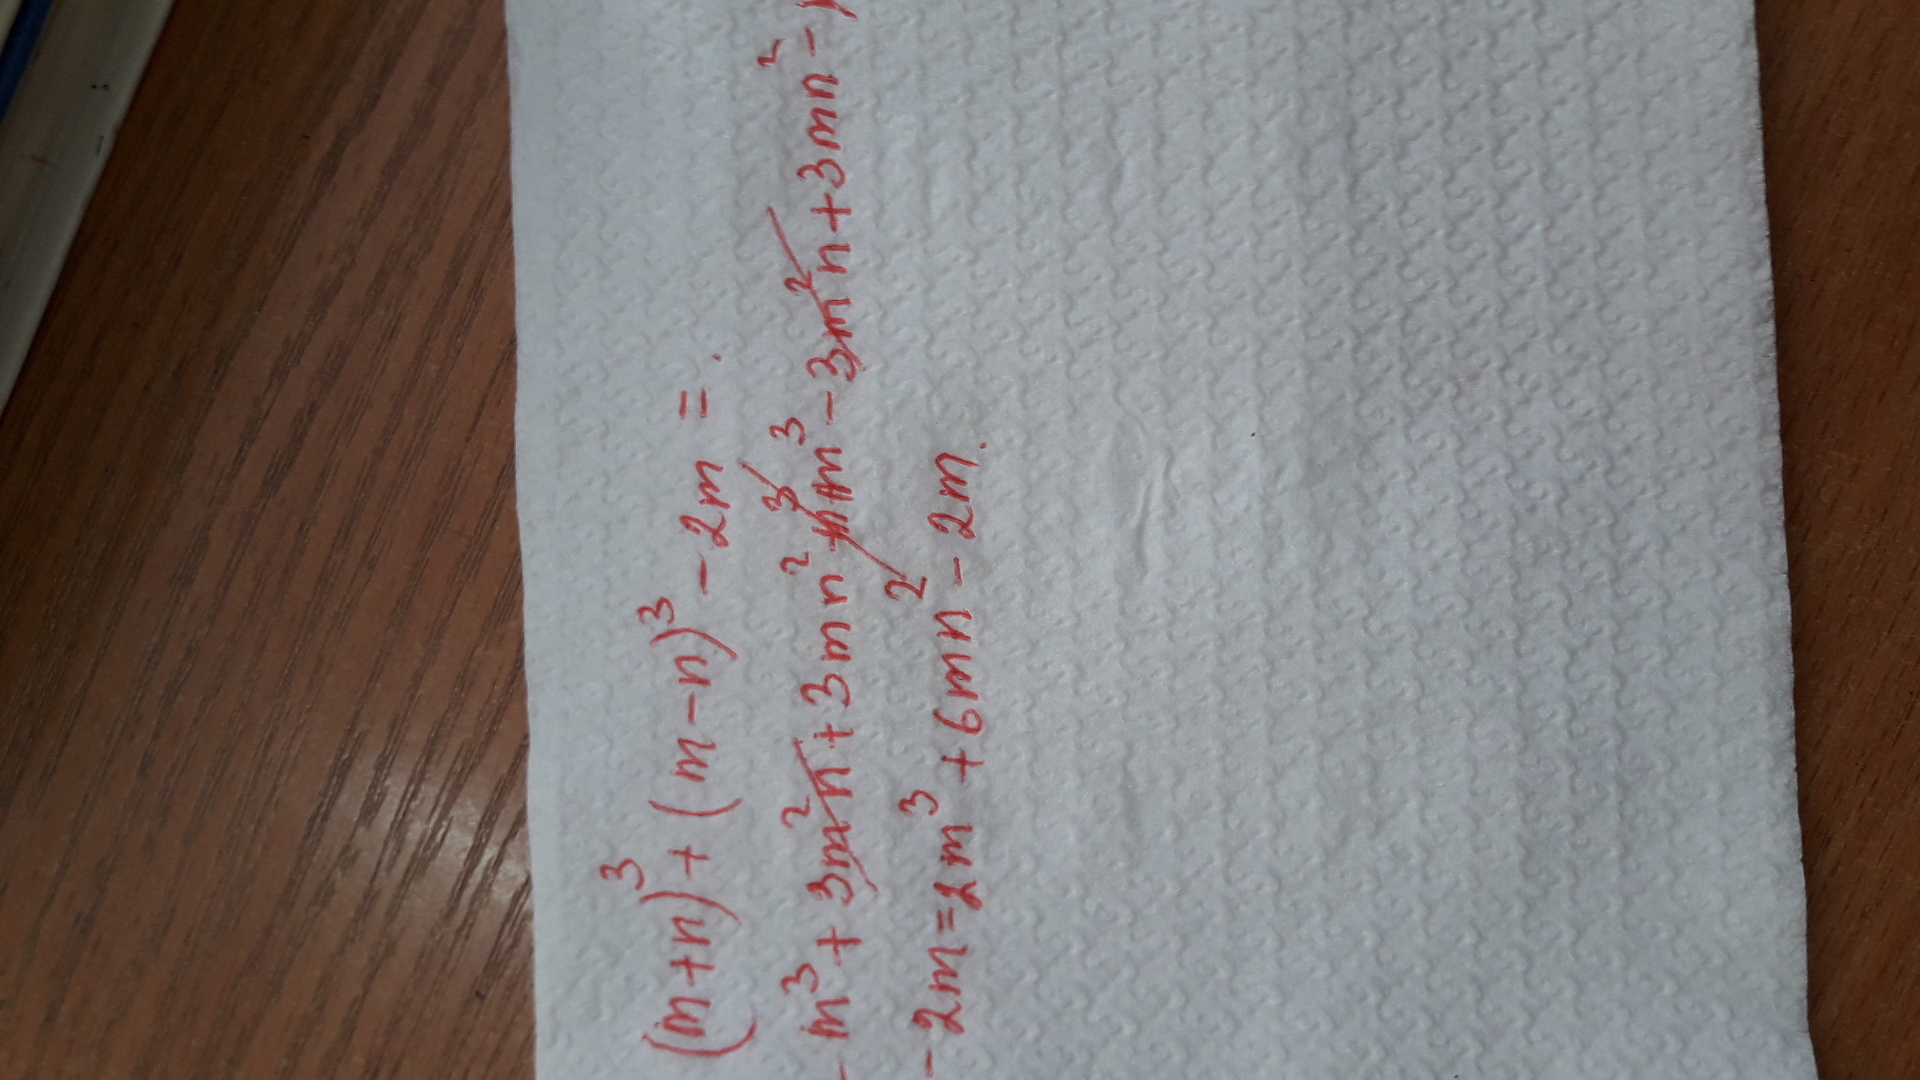 (m+n)³+(m-n)³-2m=.
-m³+3m²n+3mn²+n³+m³-3m²n+3mn²-
-2m=2m³+6mn²-2m.